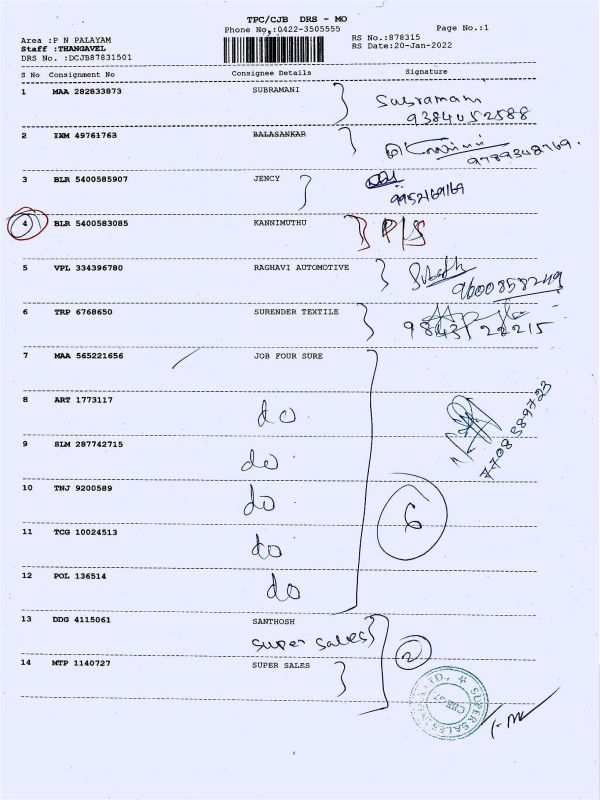 TPC/CJB DRS - MO
Phone No.:0422-3505555
Page No.:1
Area :P N PALAYAM
RS No.:878315
Staff :THANGAVEL
RS Date:20-Jan-2022
DRS No. :DCJB87831501
S No Consignment No Consignee Details Signature
1 MAA 282833873 SUBRAMANI
Subramani
9384052588
2 IXM 49761763 BALASANKAR
9789348769.
3 BLR 5400585907 JENCY
9952169169
4 BLR 5400583085 KANNIMUTHU P/S
5 VPL 334396780 RAGHAVI AUTOMOTIVE
9600858249
6 TRP 6768650 SURENDER TEXTILE
98431 28215
7 MAA 565221656 JOB FOUR SURE
8 ART 1773117 do
7708589723
9 SLM 287742715 do
10 TNJ 9200589 do
6
11 TCG 10024513 do
12 POL 136514 do
13 DDG 4115061 SANTHOSH
super sales
2
14 MTP 1140727 SUPER SALES
SUPER SALES